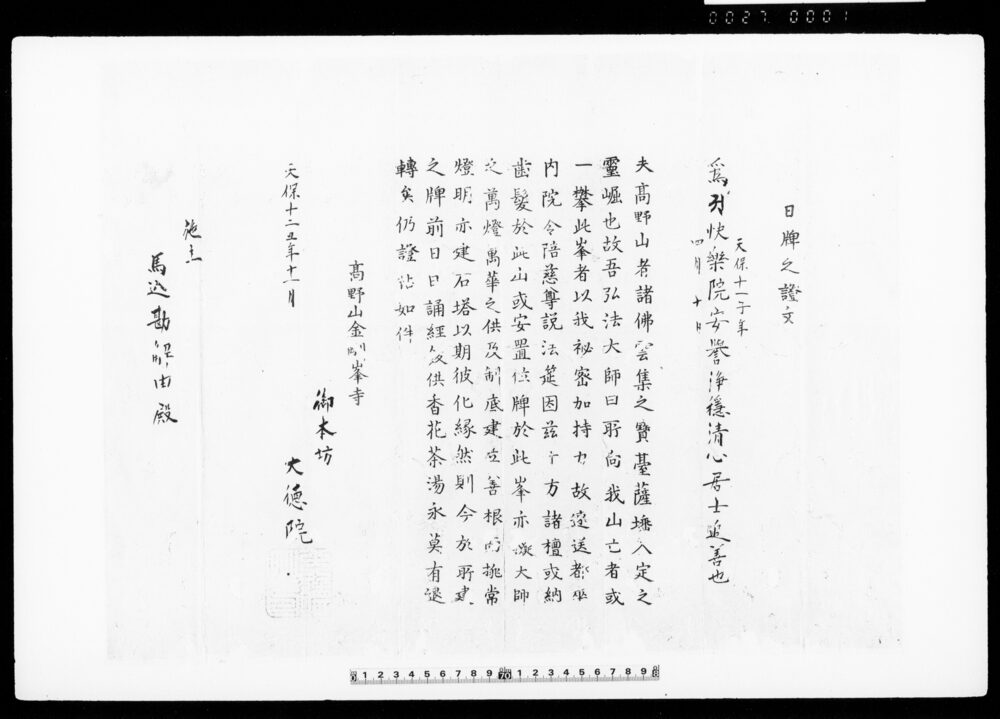 0027 0001
日牌之證文
天保十一子年
四月十日
為 快樂院安譽浄穏清心居士追善也
夫高野山者諸佛雲集之寶臺薩埵入定之
靈崛也故吾弘法大師曰所向我山亡者或
一攀此峯者以我祕密加持力故遠送都率
内院令陪慈尊説法筵因茲十方諸檀或納
齒髪於此山或安置位牌於此峯亦擬大師
之萬燈萬華之供及制底建立善根而挑常
燈明亦建石塔以期彼化縁然則今於所建
之牌前日日誦經念供香花茶湯永莫有退
轉矣仍證状如件
高野山金剛峯寺
御本坊
大德院
天保十二丑年十一月
施主
馬込勘解由殿
0 1 2 3 4 5 6 7 8 9 70 1 2 3 4 5 6 7 8 9